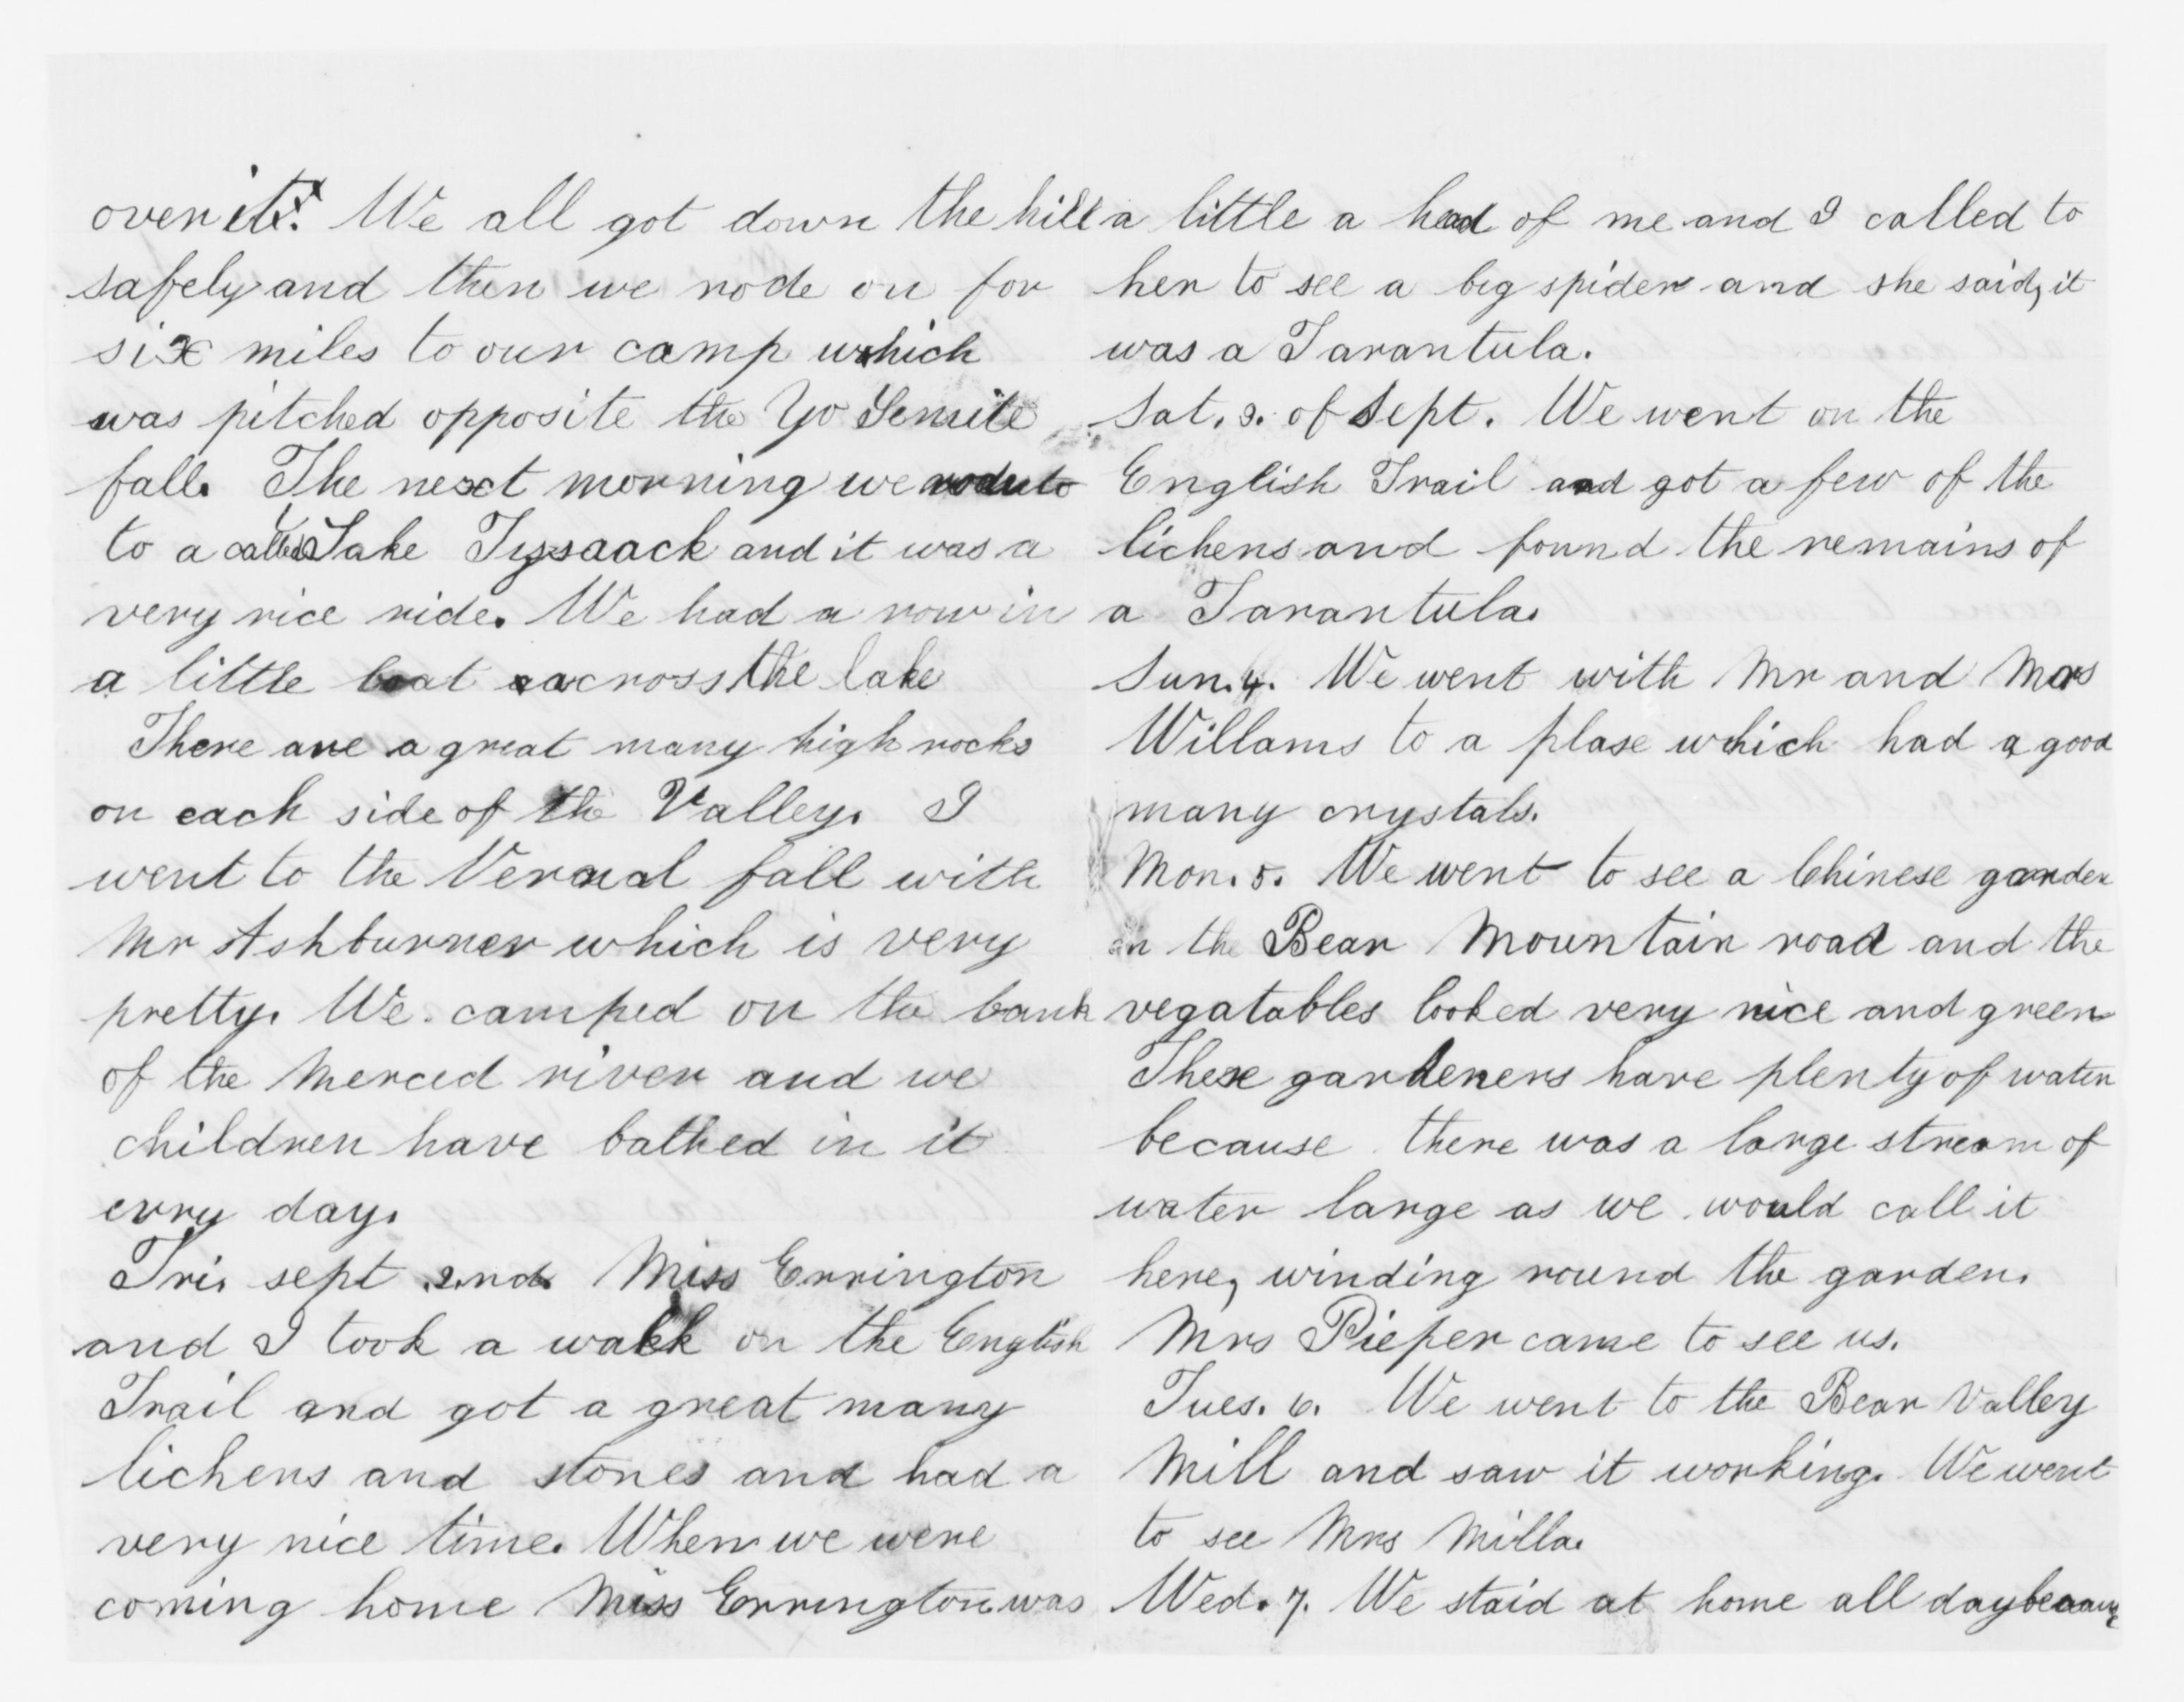 over it. We all got down the hill
safely and then we rode on for
six miles to our camp which
was pitched opposite the Yo Semite
fall. The next morning we rode to
to a called Lake Tyssaack and it was a
very nice ride. We had a row in
a little boat across the lake
There are a great many high rocks
on each side of the Valley. I
went to the Vernal fall with
Mr Ashburner which is very
pretty. We camped on the bank
of the Merced river and we
children have bathed in it
evry day.
Fri. sept 2nd. Miss Errington
and I took a walk on the English
Trail and got a great many
lichens and stones and had a
very nice time. When we were
coming home Miss Errington was
a little a head of me and I called to
her to see a big spider and she said, it
was a Tarantula.
Sat. 3. of Sept. We went on the
English Trail and got a few of the
lichens and found the remains of
a Tarantula.
Sun. 4. We went with Mr and Mrs
Willams to a plase which had a good
many crystals.
Mon. 5. We went to see a Chinese garden
on the Bear Mountain road and the
vegatables looked very nice and green
These gardeners have plenty of water
because there was a large stream of
water large as we would call it
here, winding round the garden.
Mrs Pieper came to see us.
Tues. 6. We went to the Bear Valley
Mill and saw it working. We went
to see Mrs Milla.
Wed. 7. We staid at home all day